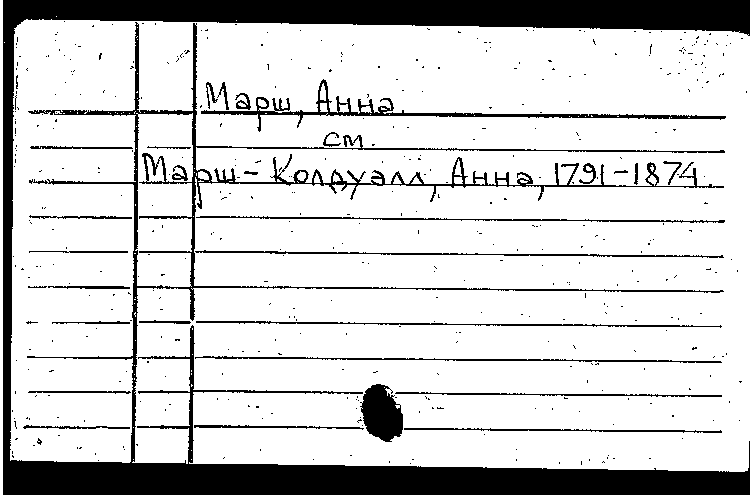 Марш, Анна.
см.
Марш-Колдуэлл, Анна, 1791-1874.